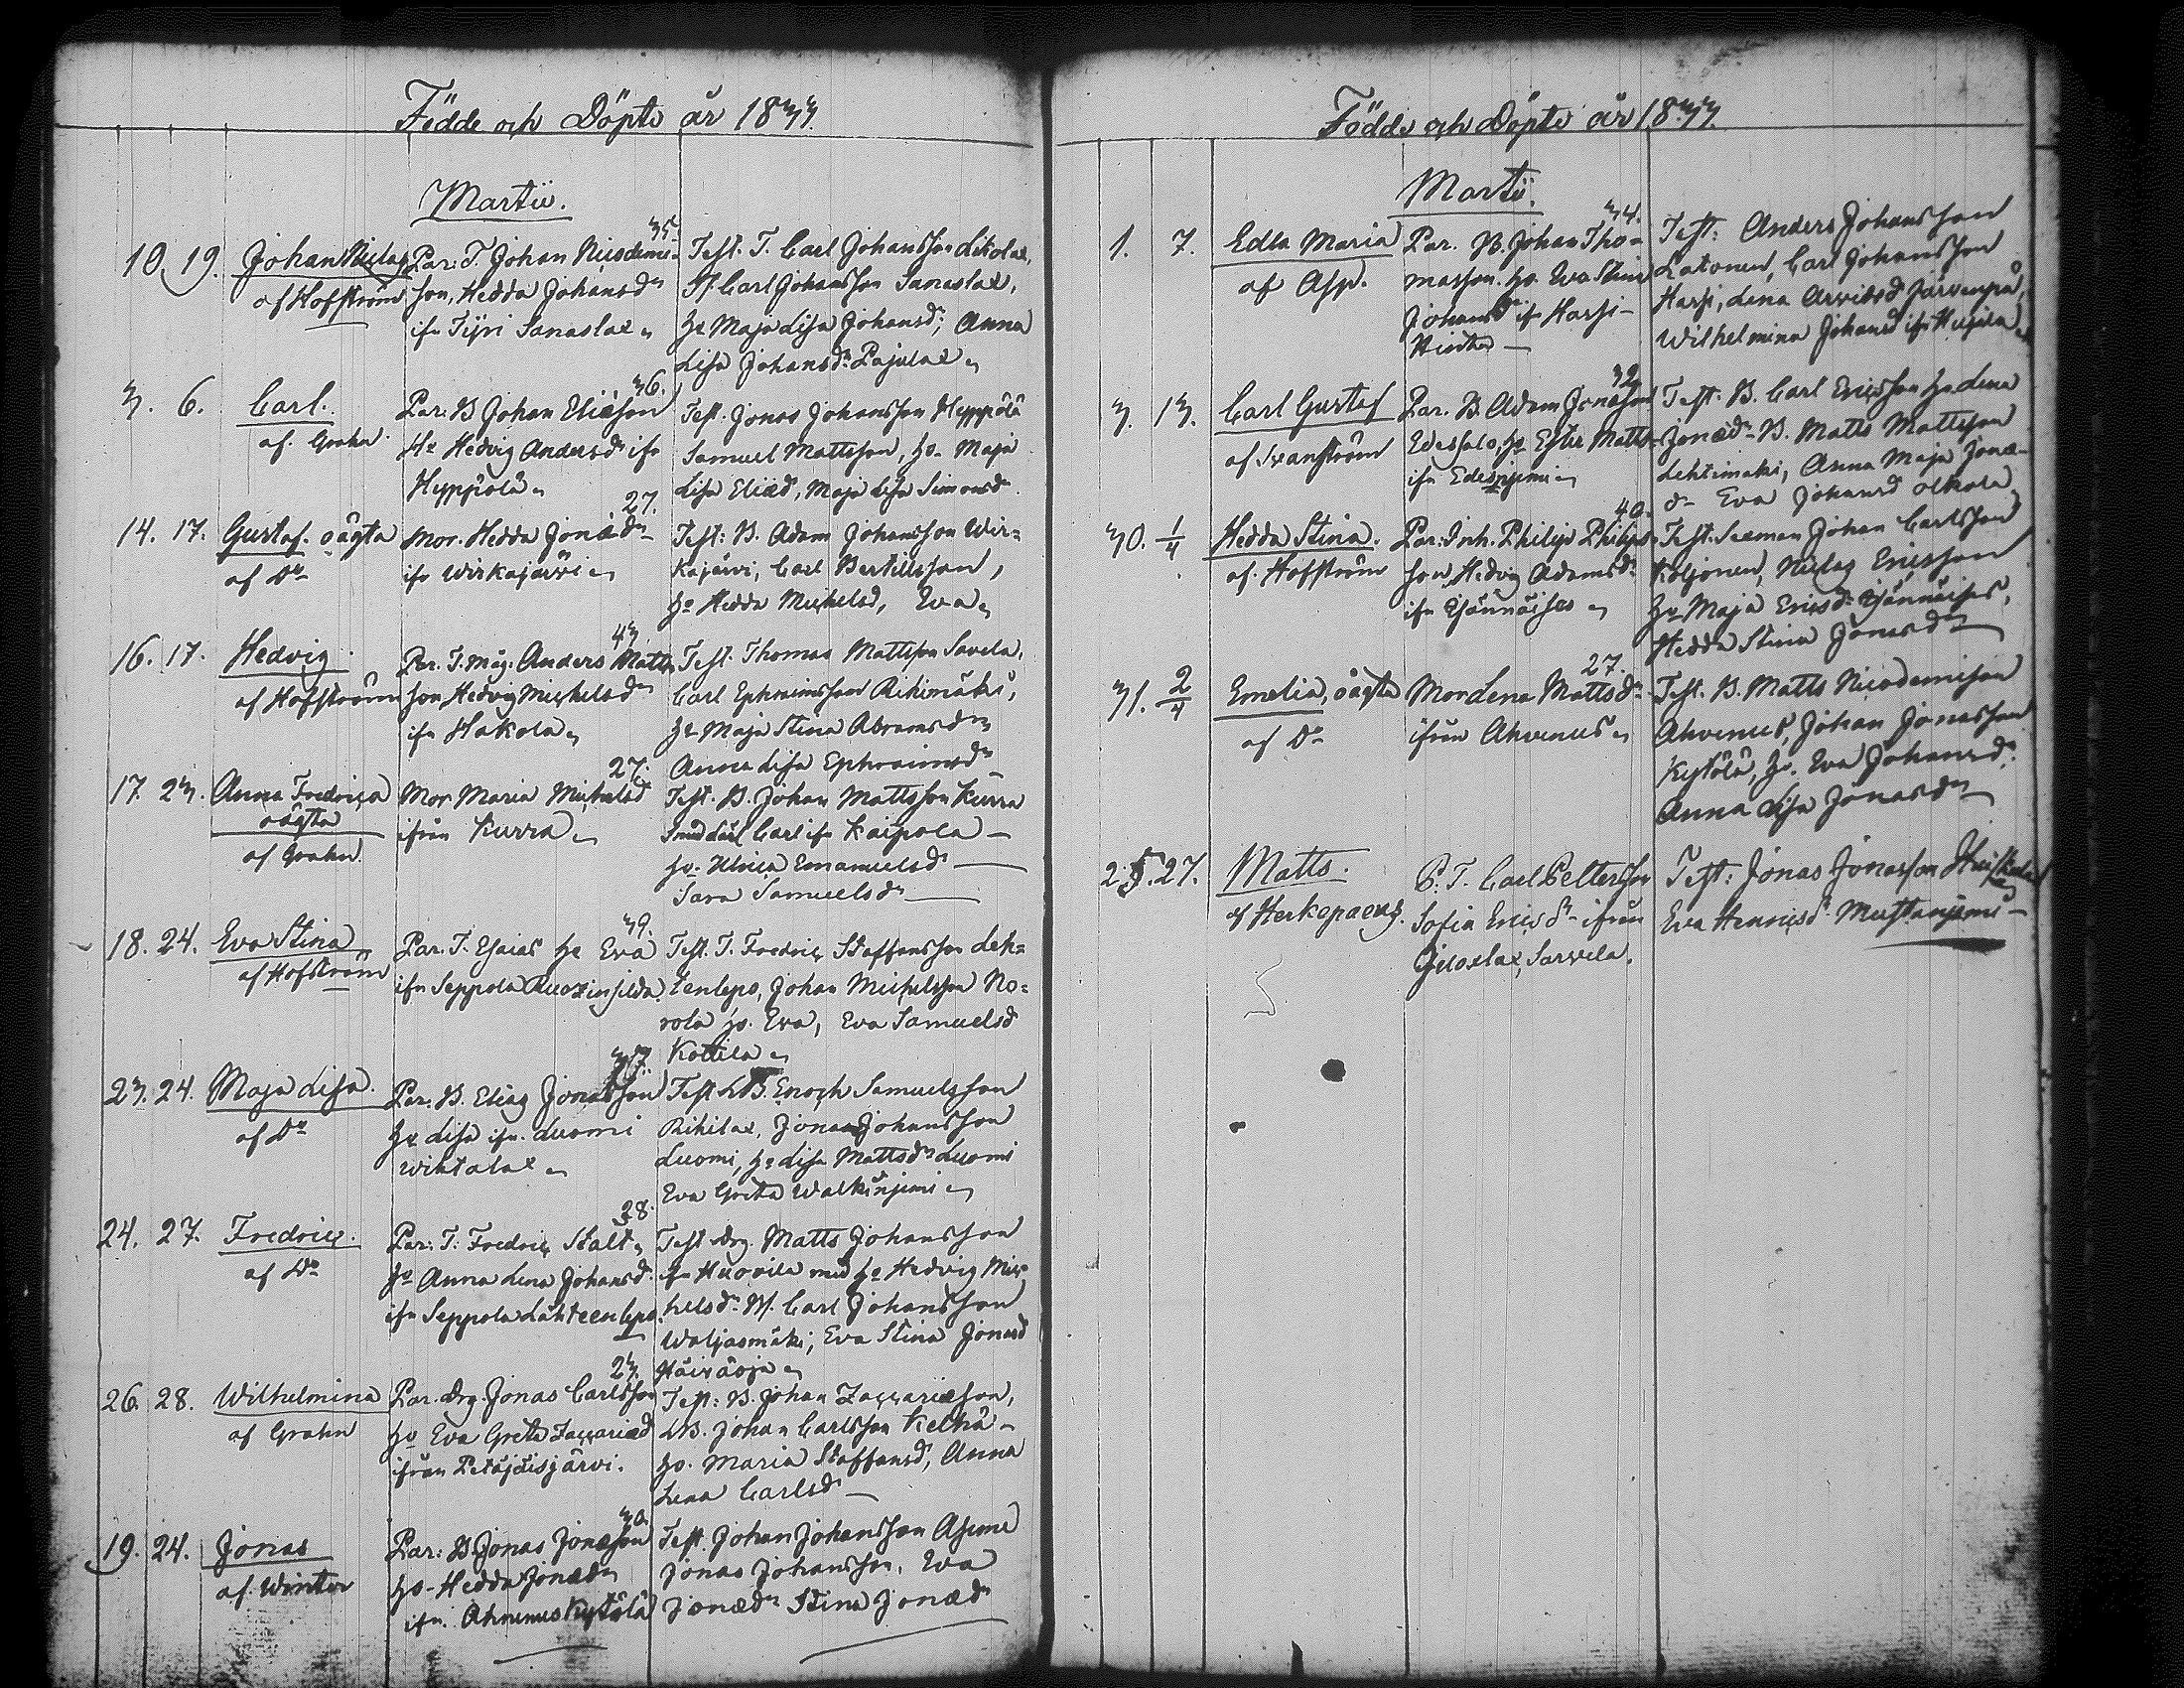 Födde och Döpte år 1833.
Martii.
10. 19. Johan Niclas
af Hoffström
35.
Par: T. Johan Nicodemi-
son, Hedda Johansdr
ifn Tijri Sanaslax
Test: T. Carl Johansson Likolax,
Carl Johansson Sanaslax,
hu Maja Lisa Johansd; Anna
Lisa Johansdr Pajulax
3. 6. Carl.
af Grahn.
36.
Par: B Johan Eliæson
Hu Hedvig Andersdr ifn
Hyppölä
Test. Jonas Johansson Hyppölä
Samuel Mattsson, hu Maja
Lisa Eliæd, Maja Lisa Simonsd
14. 17. Gustaf. oägta
af Do
27.
Mor. Hedda Jonædr
ifn Wirkajärvi
Test: B. Adam Johansson Wir=
kajärvi, Carl Bertillsson,
hu Hedda Michelsd, Eva
16. 17. Hedvig
af Hoffström
43.
Par. T. Måg. Anders Matts
son, Hedvig Michelsdr
ifn Hakola
Test. Thomas Mattsson Savela,
Carl Ephraimsson Rihimäki,
hu Maja Stina Abramsdr
Anna Lisa Ephraimsdr
17. 23. Anna Fredrica
oägta
af Grahn
27.
Mor Maria Michelsd
ifrån Kurra
Test. B. Johan Mattsson Kurra
Carl ifn Kaipola
hu Ulrica Emanuelsd
Sara Samuelsd
18. 24. Eva Stina
af Hofström
39.
Par. T. Esaias hu Eva
ifn Seppola
Test. T. Fredric Staffansson Leh=
tenlepo, Johan Michelsson No=
rola hu Eva, Eva Samuelsd
Kottila
23. 24. Maja Lisa.
af Do
Par: B. Elias Jonasson
hu Lisa ifn. Luomi
wihtalax
Test LB. Enoch Samuelsson
Rihilax, Jonas Johansson
Luomi, hu Lisa Mattsdr Luomi
Eva Greta Walkiinjemi
24. 27. Fredric.
af Do
28.
Par: T: Fredric Stalt
hu Anna Lena Johansd
ifn Seppola Lähteenlepo
Test Drg. Matts Johansson
ifn Huovila med hu Hedvig Mic
helsdr. Carl Johansson
Waljasmäki; Eva Stina Jonasd
Häiväoja
26. 28. Wilhelmina
af Grahn
23.
Par. Drg. Jonas Carlsson
hu Eva Greta Zaccariæd
ifrån Petäjäisjärvi.
Test: B. Johan Zaccariæson,
LB. Johan Carlsson Kelhä
hu. Maria Staffansd, Anna
Lena Carlsd
19. 24. Jonas
af Winter
30.
Par: B Jonas Jonæson
hu Hedda Jonæd
ifn. Ahvenus Kytölä
Test. Johan Johansson
Jonas Johansson, Eva
Jonædr Stina Jonæd
Födde och Döpte år 1833.
Martii.
1. 7. Edla Maria
af Asp.
34.
Par. Johan Tho-
masson. hu. Eva Stina
Johansd ifn Harsi-
Hiedka
Test: Anders Johansson
Latonen, Carl Johansson
Harsi, Lena Arvidsd Järvenpää,
Wilhelmina Johansd ifn
3. 13. Carl Gustaf
af Svanström
32.
Par. B. Adam Jonæson
Edessalo, hu Ester Matts-
ifn Edesnjemi
Test: B. Carl Ericsson hu Lena
Jonædr B. Matts Mattsson
Lehtimäki, Anna Maja Jonæ-
dr Eva Johansd Olkola
30. 1/4 Hedda Stina.
af. Hoffström
40.
Par: Inh. Philip Philips-
son, Hedvig Adamsdr
ifn
Test: Seeman Johan Carlsson
Koljonen, Niclas Ericsson
hu Maja Ericsdr
Hedda Stina Jonasdr
31. 2/4 Emelia, oägta
af Do
27.
Mor Lena Mattsdr
ifrån Ahvenus
Test. B. Matts Nicodemison
Ahvenus, Johan Jonasson
Kytölä, hu. Eva Johansdr
Anna Lisa Jonasdr
25. 27. Matts.
af Herkepaeus.
P. T. Carl Pettersson
Sofia Ericsdr ifrån
Sarvela.
Test: Jonas Jonasson
Eva Henricsdr Mustanjemi